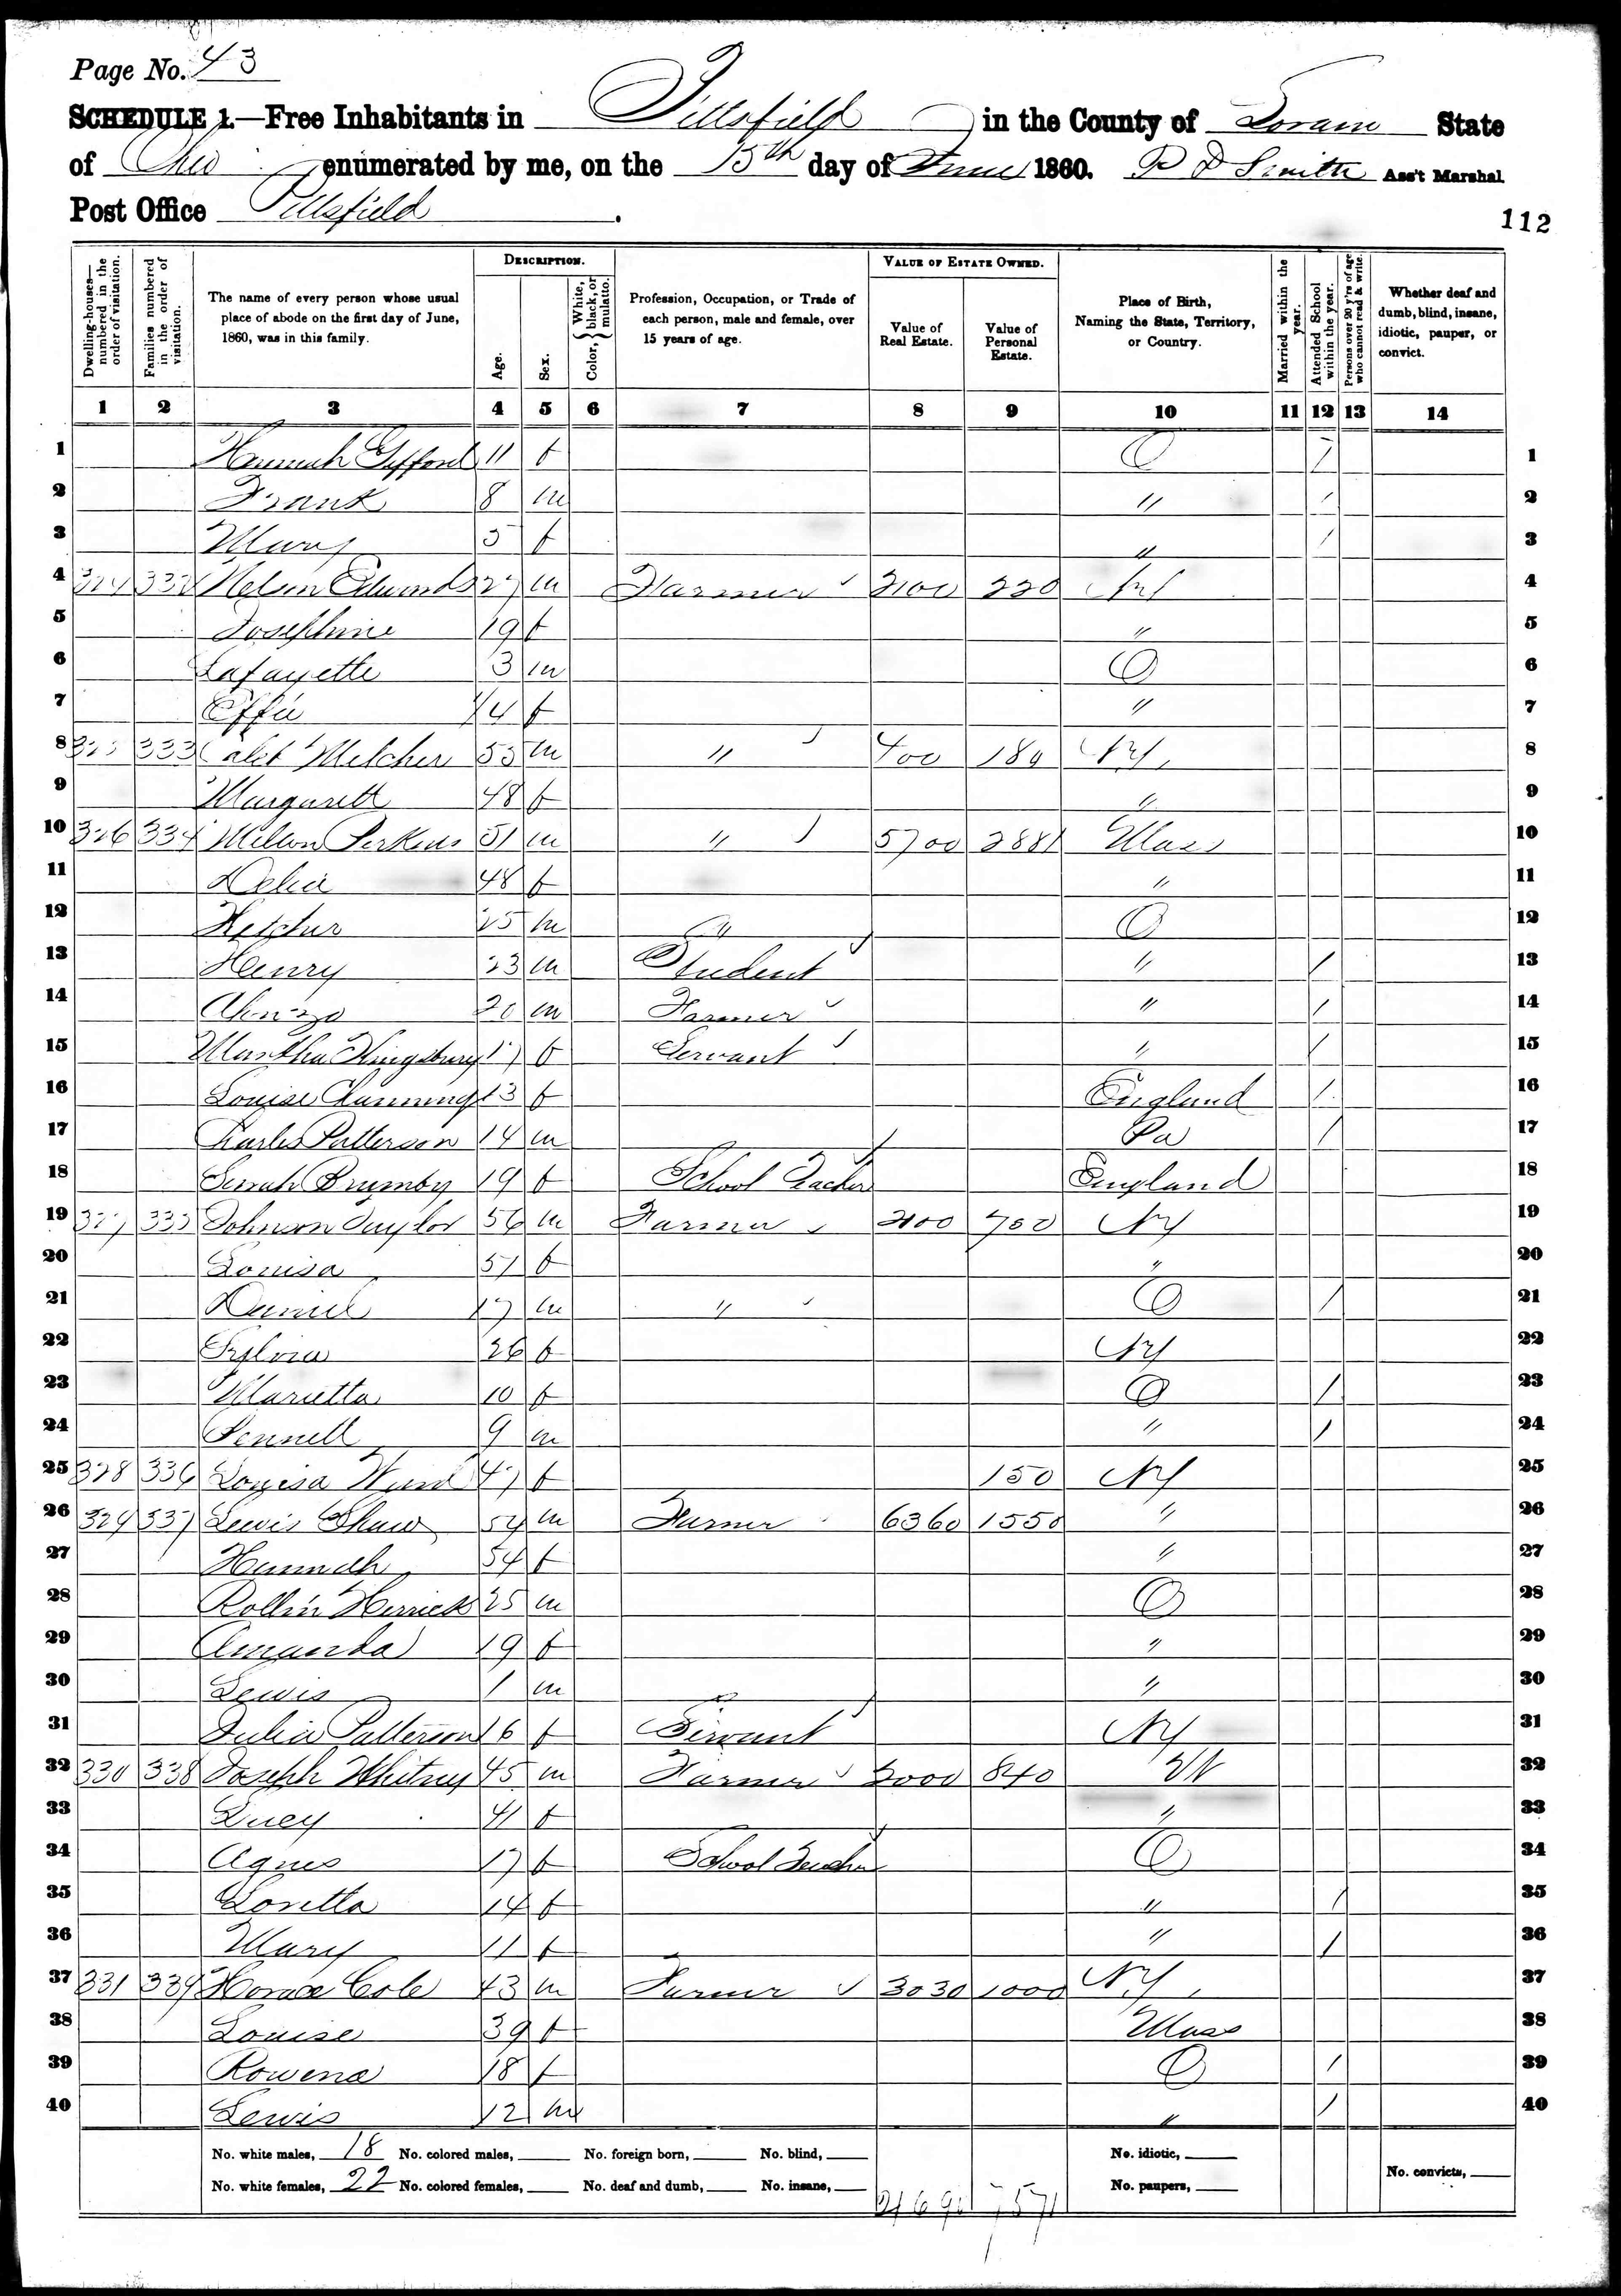 Page No. 43
SCHEDULE 1.—Free Inhabitants in Pittsfield in the County of Lorain State
of Ohio enumerated by me, on the 15th day of June 1860. P D Smith Ass't Marshal
Post Office Pittsfield.
112
Dwelling-houses—numbered in the order of visitation.
Families numbered in the order of visitation.
The name of every person whose usual place of abode on the first day of June, 1860, was in this family.
DESCRIPTION.
Age.
Sex.
Color, { White, black, or mulatto.
Profession, Occupation, or Trade of each person, male and female, over 15 years of age.
VALUE OF ESTATE OWNED.
Value of Real Estate.
Value of Personal Estate.
Place of Birth, Naming the State, Territory, or Country.
Married within the year.
Attended School within the year.
Persons over 20 y'rs of age who cannot read & write.
Whether deaf and dumb, blind, insane, idiotic, pauper, or convict.
1 2 3 4 5 6 7 8 9 10 11 12 13 14
1 Hannah Gifford 11 f O / 1
2 Frank 8 m " / 2
3 Mary 5 f " / 3
4 324 332 Nelson Edmonds 27 m Farmer 2100 220 NY 4
5 Josephine 19 f " 5
6 Lafayette 3 m O 6
7 Effie 1/4 f " 7
8 325 333 Caleb Melcher 55 m " 400 180 NY, 8
9 Margarett 48 f " 9
10 326 334 Milton Perkins 51 m " 5700 2881 Mass 10
11 Delia 48 f " 11
12 25 m " O 12
13 Henry 23 m Student " / 13
14 Alonzo 20 m Farmer " / 14
15 Martha Kingsbury 17 f Servant " / 15
16 Louise Channing 13 f England / 16
17 Charles Patterson 14 m Pa / 17
18 Sarah Brumby 19 f School Teacher England 18
19 327 335 Johnson Taylor 56 m Farmer 2100 700 NY 19
20 Louisa 51 f " 20
21 Daniel 17 m " O / 21
22 Sylvia 26 f NY 22
23 Marietta 10 f O / 23
24 Pennell 9 m " / 24
25 328 336 Louisa 47 f 150 NY 25
26 329 337 Lewis Shaw 54 m Farmer 6360 1550 " 26
27 Hannah 54 f " 27
28 Rollin Herrick 25 m O 28
29 Amanda 19 f " 29
30 Lewis 1 m " 30
31 Julia Patterson 16 f Servant NY 31
32 330 338 Joseph Whitney 45 m Farmer 2000 840 Vt 32
33 Lucy 41 f " 33
34 Agnes 17 f School Teacher O 34
35 Loretta 14 f " / 35
36 Mary 11 f " / 36
37 331 339 Horace Cole 43 m Farmer 3030 1000 NY, 37
38 Louise 39 f Mass 38
39 Rowena 18 f O / 39
40 Lewis 12 m " / 40
No. white males, 18 No. colored males, No. foreign born, No. blind, No. idiotic,
No. white females, 22 No. colored females, No. deaf and dumb, No. insane, No. paupers, No. convicts,
21690 7571